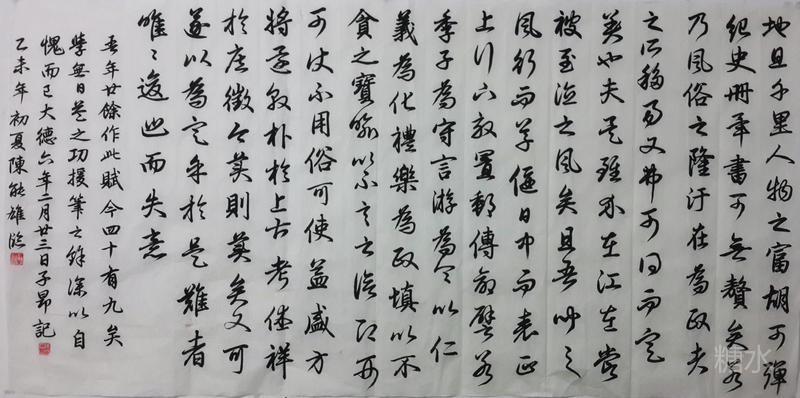 地且千里人物之富胡可殫
紀史冊年書可無贅矣若
乃風俗之隆汙在為政夫
之所移易又弗可同而定
美也夫吳雖介在江左嘗
被至德之風矣且吾聞之
風行而草偃日中而表正
上行下效置郵傳命譬若
季子為守言游為令以仁
義為化禮樂為政填以不
貪之寶喻以不言之信
可使不用俗可使益盛方
將還敦朴於上古考休祥
於庶徵今美則美矣又可
遂以為定乎於是難者
唯唯逡巡而失意
吾年廿餘作此賦今四十有九矣
學無日益之功援筆之餘深以自
愧而已大德六年二月廿三日子昂記
乙未年初夏陳能雄臨
糖水